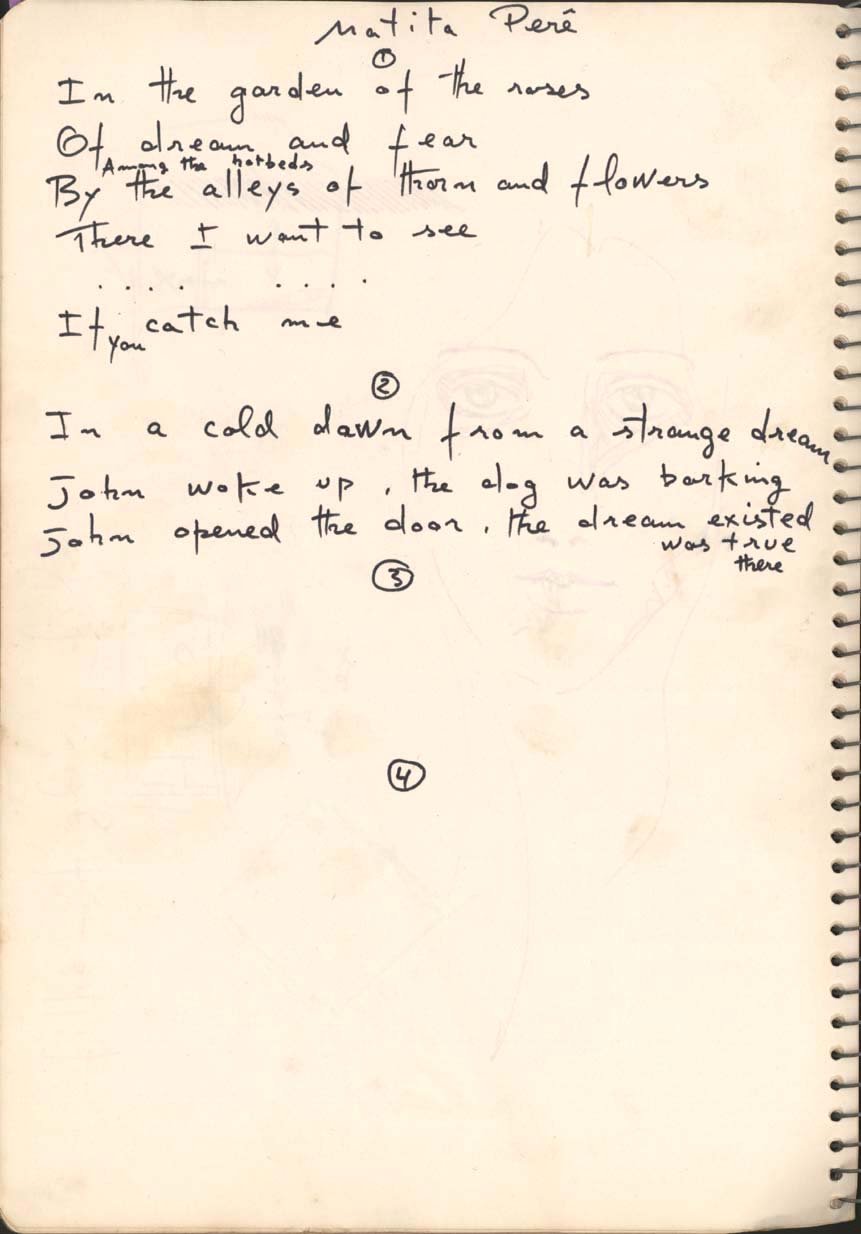 Matita Perê
①
In the garden of the roses
Of dream and fear
Among the hotbeds
By the alleys of thorn and flowers
There I want to see
. . . . . . . .
If you catch me
②
In a cold dawn from a strange dream
John woke up, the dog was barking
John opened the door, the dream existed
was true
there
③
④